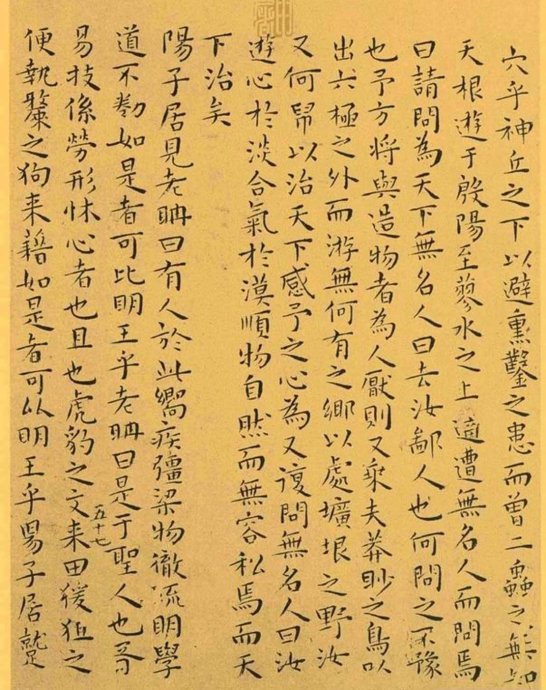 穴乎神丘之下以避熏鑿之患而曾二蟲之無知
天根遊于殷陽至蓼水之上適遭無名人而問焉
曰請問為天下無名人曰去汝鄙人也何問之不豫
也予方將與造物者為人厭則又乘夫莽眇之鳥以
出六極之外而游無何有之鄉以處壙垠之野汝
又何帠以治天下感予之心為又復問無名人曰汝
遊心於淡合氣於漠順物自然而無容私焉而天
下治矣
陽子居見老聃曰有人於此嚮疾彊梁物徹疏明學
道不勌如是者可比明王乎老聃曰是于聖人也胥
易技係勞形怵心者也且也虎豹之文来田猨狙之
五十七
便執斄之狗来藉如是者可以明王乎陽子居蹵